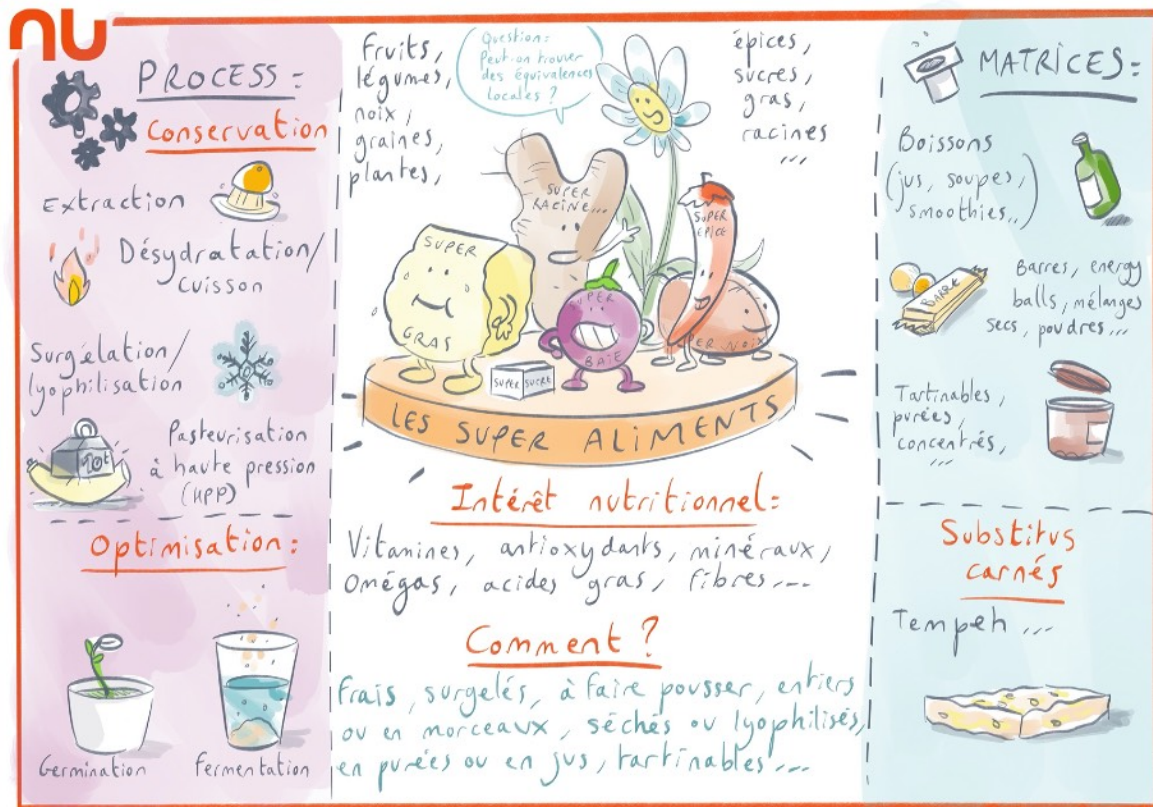 nu
PROCESS:
Conservation
Extraction
Désydratation/
cuisson
Surgélation/
lyophilisation
10t
Pasteurisation
à haute pression
(HPP)
Optimisation:
Germination
Fermentation
Fruits,
légumes,
noix,
graines,
plantes,
Question:
Peut-on trouver
des équivalences
locales ?
épices,
sucres,
gras,
racines
...
SUPER
RACINE...
SUPER
GRAS
SUPER
BAIE
SUPER
EPICE
SUPER NOIX
SUPER SUCRE
LES SUPER ALIMENTS
Intérêt nutritionnel:
Vitamines, antioxydants, minéraux,
Omégas, acides gras, fibres...
Comment ?
Frais, surgelés, à faire pousser, entiers
ou en morceaux, séchés ou lyophilisés,
en purées ou en jus, tartinables...
MATRICES:
Boissons
(jus, soupes,
smoothies..)
BARRE
Barres, energy
balls, mélanges
secs, poudres...
Tartinables,
purées,
concentrés,
...
Substitus
carnés
Tempeh ...